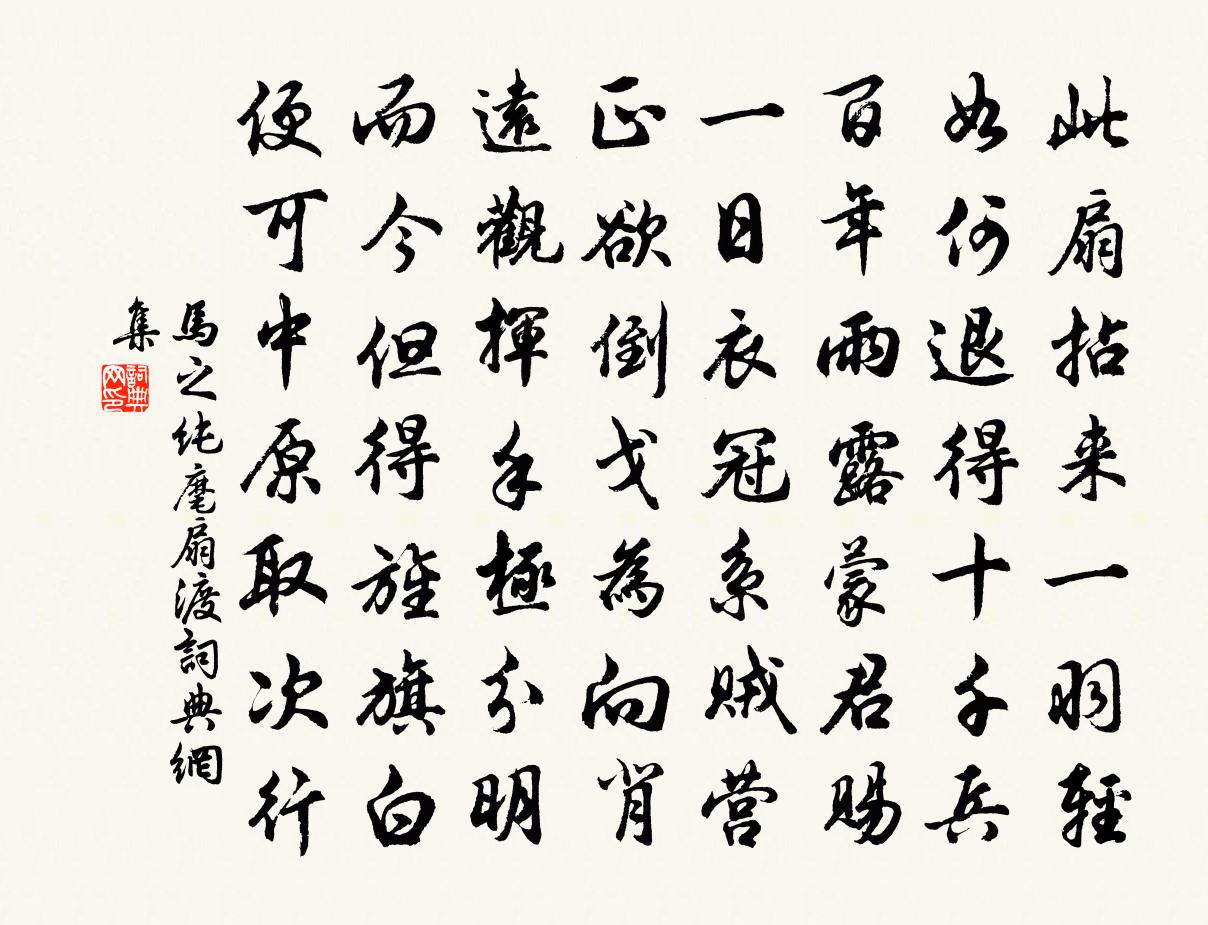 此扇拈来一羽輕
如何退得十千兵
百年雨露蒙君賜
一日衣冠系賊营
正欲倒戈為向背
遠觀揮手極分明
而今但得旌旗白
便可中原取次行
馬之純麾扇渡詞典網
集
詞典
网印